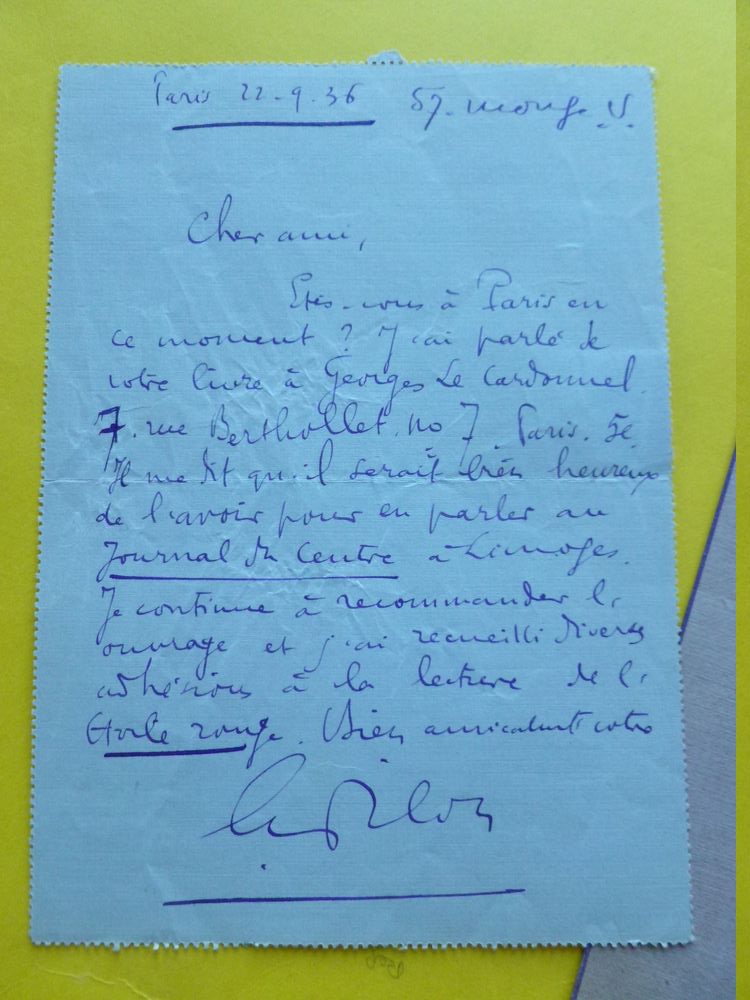 Paris 22-9.36 57. monge V.
Cher ami,
Etes-vous à Paris en
ce moment ? J'ai parlé de
votre livre à Georges Le Cardonnel.
7. rue Berthollet. no 7 Paris. 5e
Il me dit qu'il serait très heureux
de l'avoir pour en parler au
Journal du Centre à Limoges.
Je continue à recommander l'
ouvrage et j'ai recueilli diverses
adhésions à la lecture de l'
Etoile rouge. Bien amicalement votre